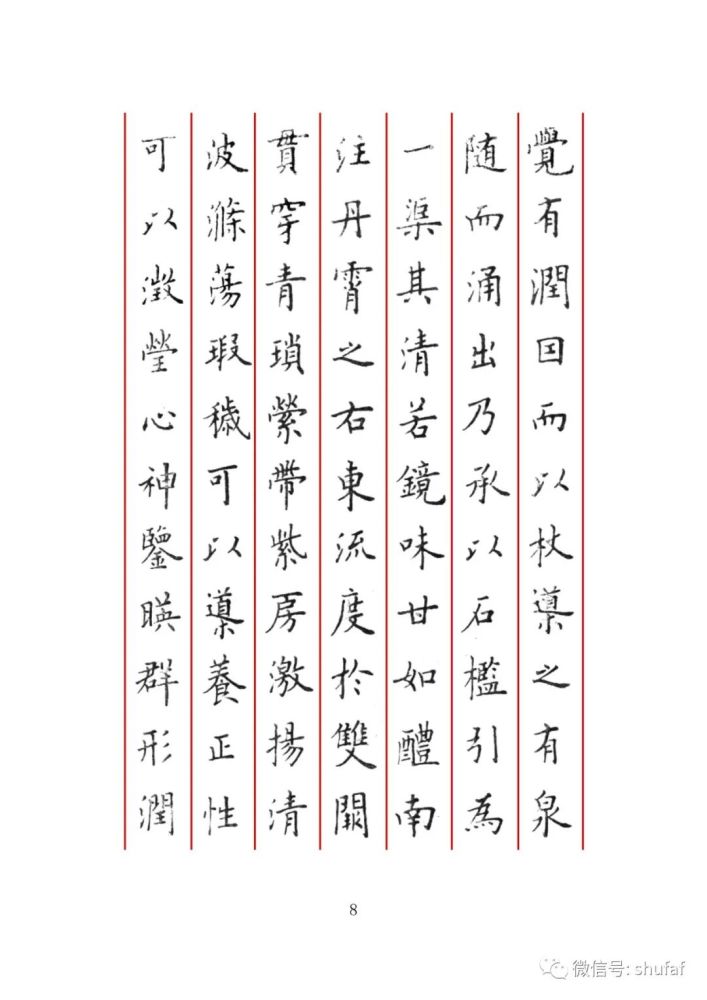 覺有潤因而以杖導之有泉
随而涌出乃承以石檻引為
一渠其清若鏡味甘如醴南
注丹霄之右東流度於雙闕
貫穿青瑣縈帶紫房激揚清
波滌蕩瑕穢可以導養正性
可以澂瑩心神鑒暎群形潤
8
微信号: shufaf